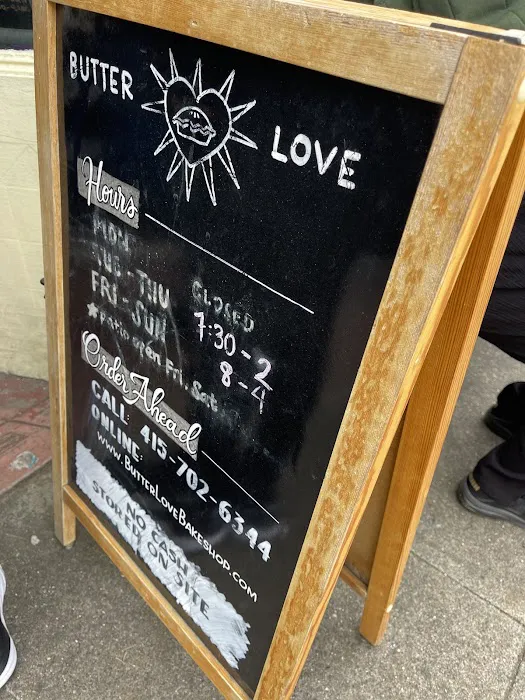 BUTTER
LOVE
Hours
MON CLOSED
TUE - THU 7:30 - 2
FRI - SUN 8 - 4
*patio open Fri. Sat
Order Ahead
CALL: 415-702-6344
ONLINE:
www.ButterLoveBakeshop.com
NO CASH
STORED ON SITE